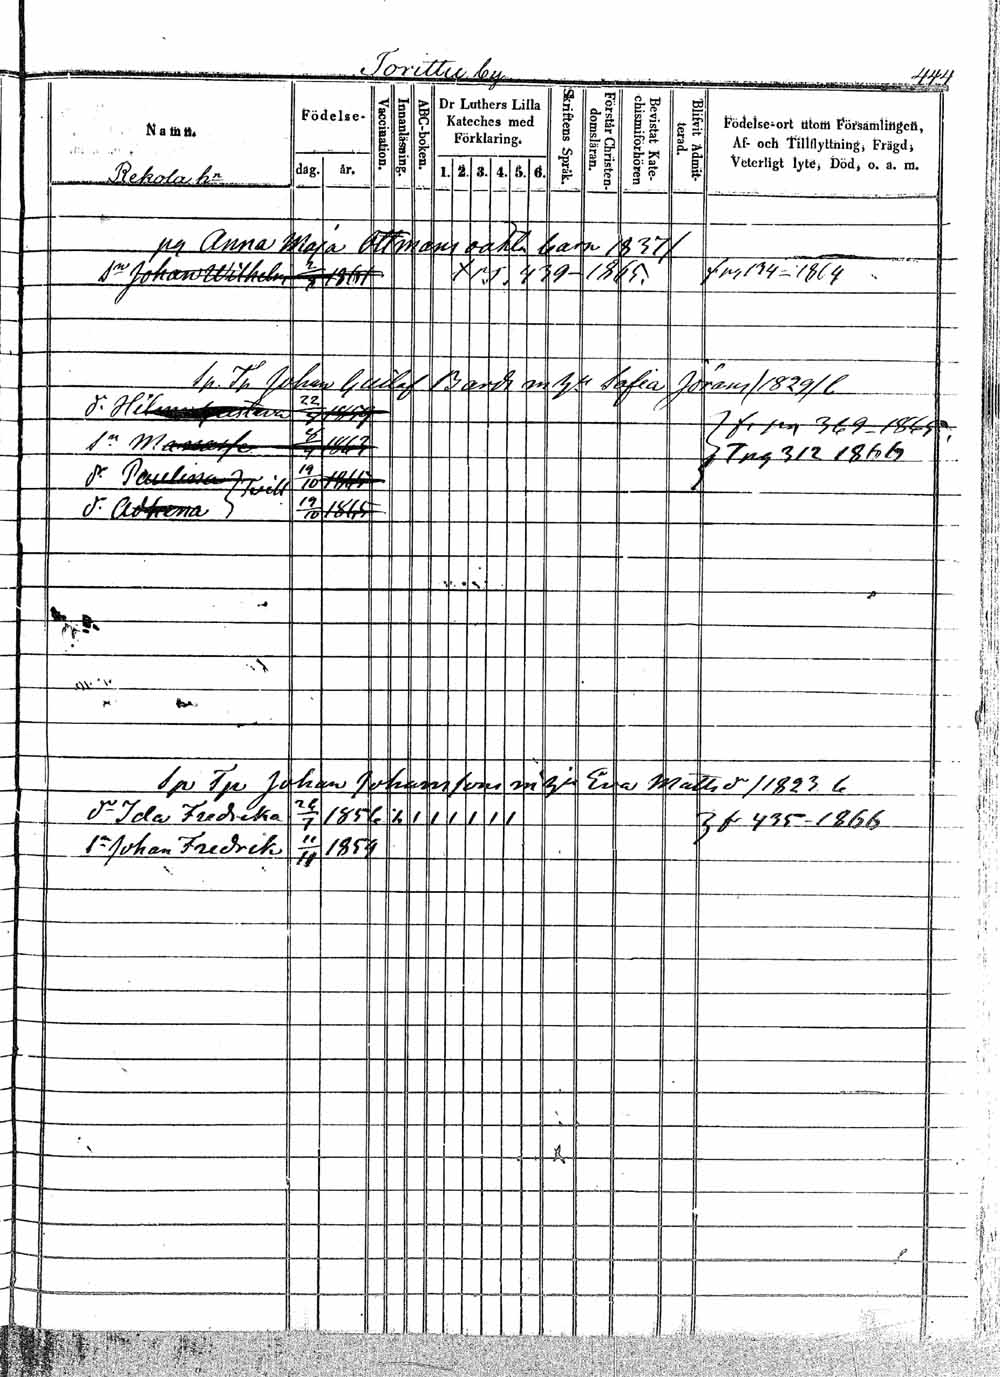 Torittu by
444
Namn.
Rekola hn
Födelse-
dag. år.
Vaccination.
Innanläsning.
ABC-boken.
Dr Luthers Lilla
Kateches med
Förklaring.
1. 2. 3. 4. 5. 6.
Skriftens Språk.
Förstår Christen-
domsläran.
Bevistat Kate-
chismiförhören
Blifvit Admit-
terad.
Födelse-ort utom Församlingen,
Af- och Tillflyttning, Frägd,
Veterligt lyte, Död, o. a. m.
pig Anna Maja Ottmans barn 1837/
sn Johan Wilhelm 1861 439 - 1865. 134 - 1864
sp. Tp Johan Gustaf m Sofia Jörans /1829/6
d. 22 1859
fr pg 369 - 1865
sn 1863
T pg 312 1866
d. Paulissa 19/10 1865
Tvill
d. 19/10 1865
sp Tp Johan Johansson Eva Matts d /1823 6
dr Ida Fredrika 1856
fr 435 - 1866
sn Johan Fredrik 1859